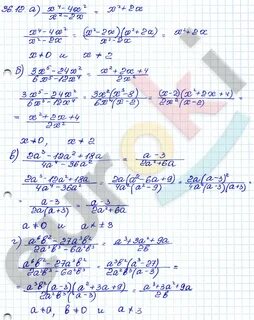 36.12 а) (x⁴ - 4x²)/(x² - 2x) = x² + 2x
(x⁴ - 4x²)/(x² - 2x) = (x² - 2x)(x² + 2x)/(x² - 2x) = x² + 2x
x ≠ 0 и x ≠ 2
б) (3x⁵ - 24x²)/(6x⁵ - 12x⁴) = (x² + 2x + 4)/(2x²)
(3x⁵ - 24x²)/(6x⁵ - 12x⁴) = 3x²(x³ - 8)/(6x⁴(x - 2)) = (x - 2)(x² + 2x + 4)/(2x²(x - 2)) =
= (x² + 2x + 4)/(2x²)
x ≠ 0, x ≠ 2
в) (2a³ - 12a² + 18a)/(4a⁴ - 36a²) = (a - 3)/(2a² + 6a)
(2a³ - 12a² + 18a)/(4a⁴ - 36a²) = 2a(a² - 6a + 9)/(4a²(a² - 9)) = 2a(a - 3)²/(4a²(a - 3)(a + 3)) =
= (a - 3)/(2a(a + 3)) = (a - 3)/(2a² + 6a)
a ≠ 0 и a ≠ ±3
г) (a⁶b² - 27a³b²)/(2a³b³ - 6a²b³) = (a³ + 3a² + 9a)/(2b)
(a⁶b² - 27a³b²)/(2a³b³ - 6a²b³) = a³b²(a³ - 27)/(2a²b³(a - 3)) =
= a³b²(a - 3)(a² + 3a + 9)/(2a²b³(a - 3)) = (a³ + 3a² + 9a)/(2b)
a ≠ 0, b ≠ 0 и a ≠ 3